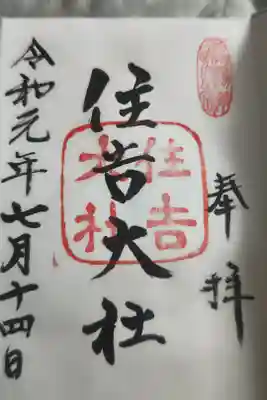 奉拝
住吉大社
住吉大社
令和元年七月十四日